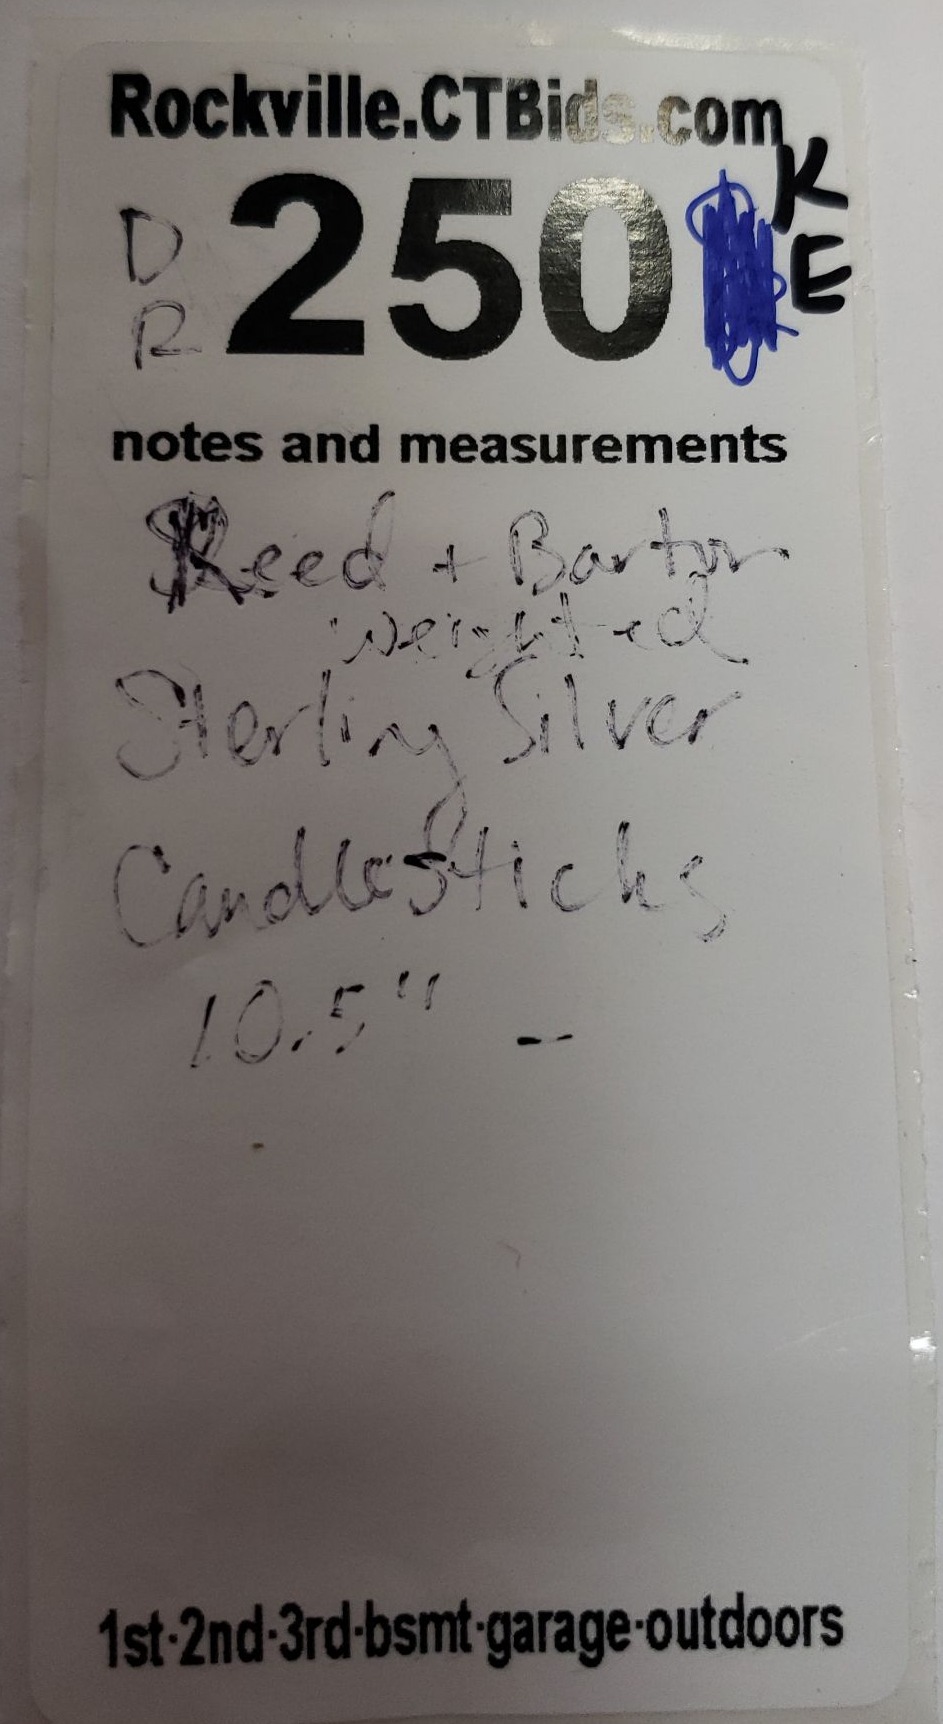 Rockville.CTBids.com
K
E
D
R
250
notes and measurements
Reed + Barton
weighted
Sterling Silver
Candlesticks
10.5" -
1st·2nd·3rd·bsmt·garage·outdoors